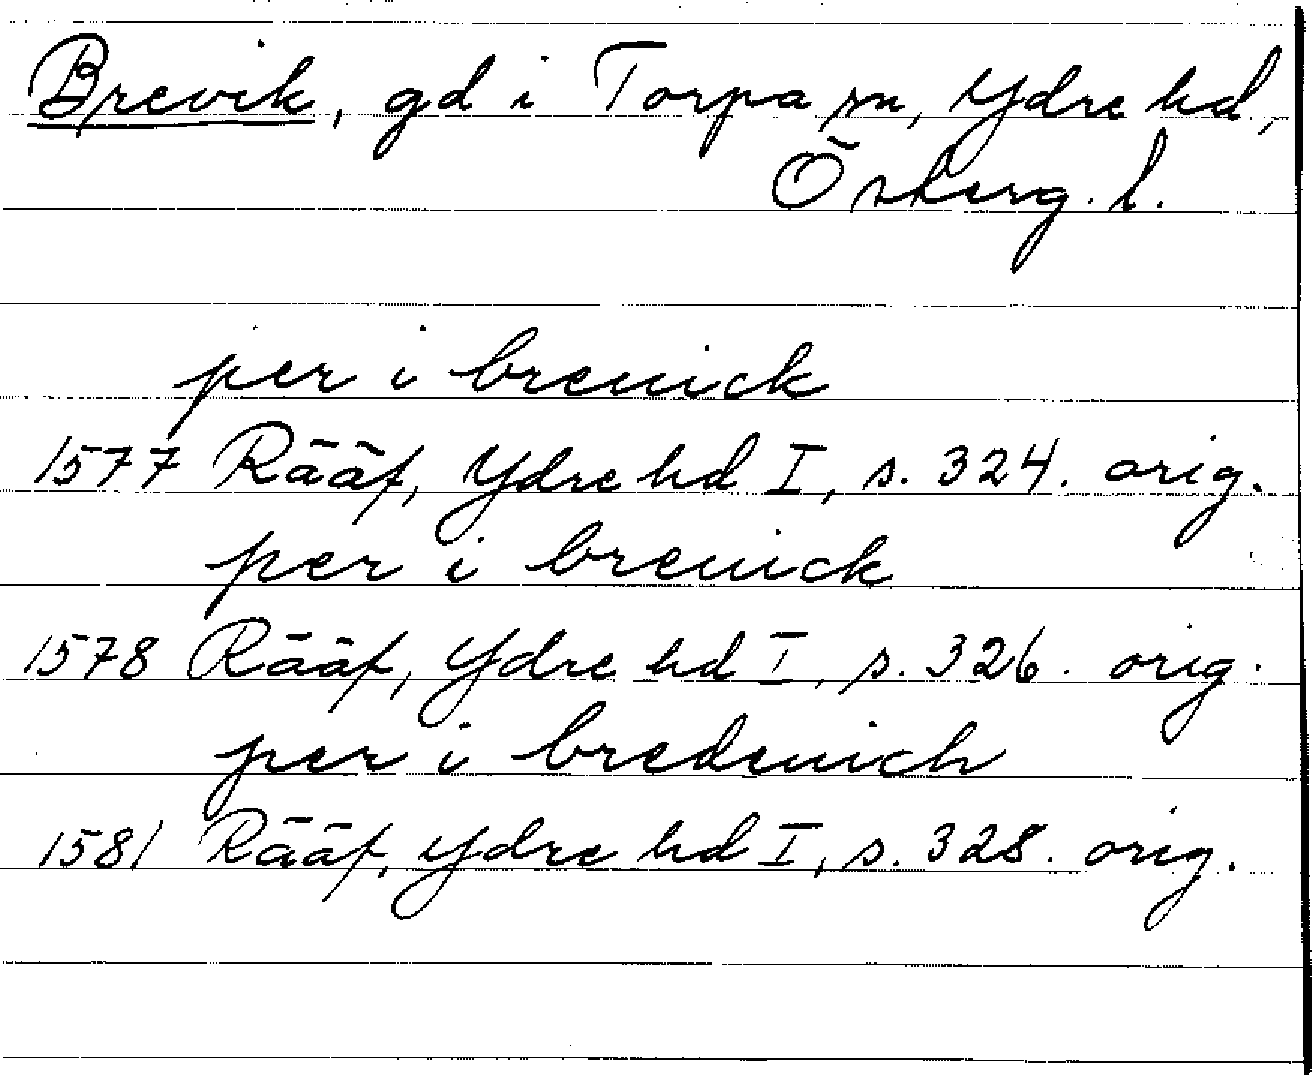 Brevik, gd i Torpa sn, Ydre hd,
Österg. l.
per i breuick
1577 Rääf, Ydre hd I, s. 324. orig.
per i breuick
1578 Rääf, Ydre hd I, s. 326. orig.
per i bredeuich
1581 Rääf, Ydre hd I, s. 328. orig.